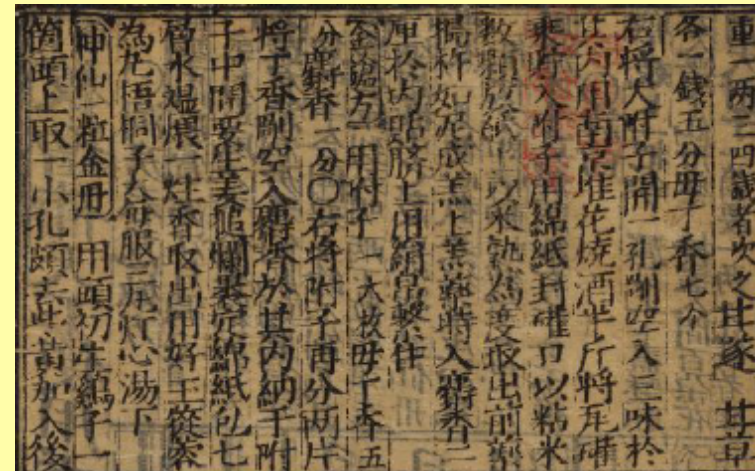 重一兩三四錢者次之甘遂 甘草
各一錢五分毋丁香七个
右將大附子開一孔剜空入三味於
其内用南京堆花燒酒半斤將瓦礶
乘片入附子用綿紙封礶口以粘米
數顆放紙上以米熟為度取出前藥
搗杵如泥成羔上羔藥時入麝香二
厘於内貼臍上用絹帛繫住
金滄方 用附子一大枚毋丁香五
分麝香一分〇右將附子再分兩片
將丁香剛空入麝香於其内納于附
子中間要生姜搥爛裹定綿紙包七
層水煴煨一炷香取出用好王蓯蓉
為尢梧桐子大每服三尢灯心湯下
神仙一粒金丹 用頭初生鷄子一
箇頭上取一小孔頗去此黄加入後